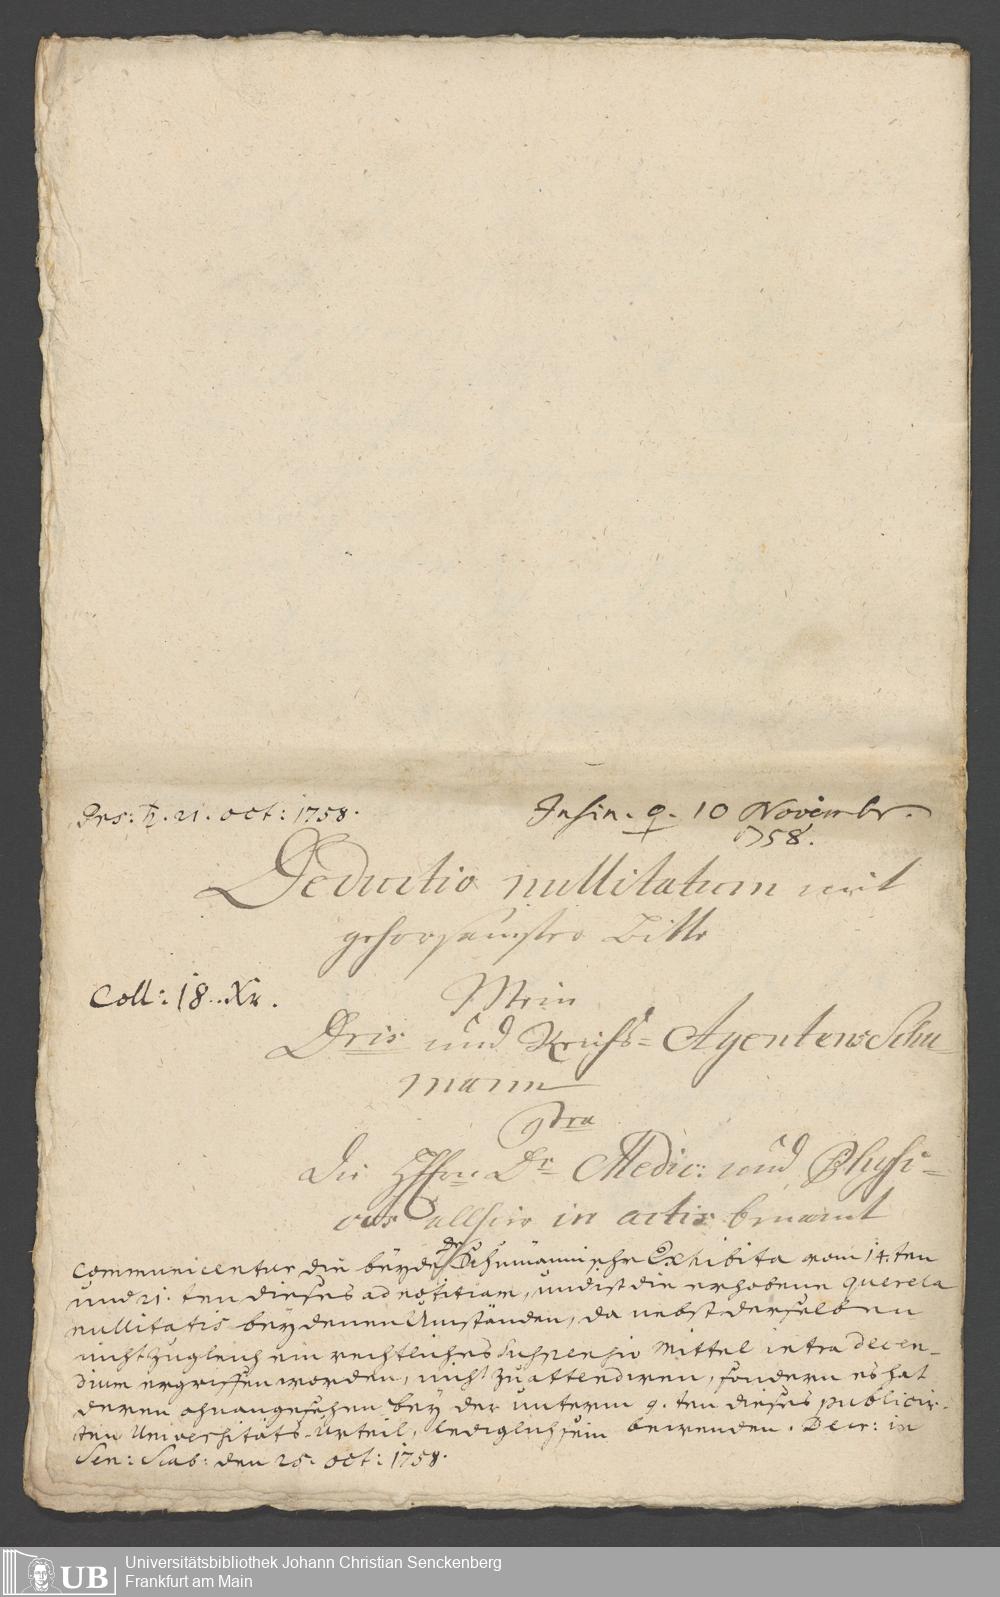 Prs: ♄. 21. oct: 1758.
Insin. ♀. 10 Novembr.
1758.
Deductio nullitatum mit
gehorsamster Bitte
Coll: 18. Xr.
Mein
Dris und Reichs-Agentens Schu-
mann
Contra
die Hhrn. Dr. Medic: und Physi-
cos allhier in actis benamt
Communicentur die beyde Schumännische Exhibita vom 14.ten
und 21.ten dieses ad notitiam, und ist die erhobene querela
nullitatis bey denen Umständen, da nebst derselben
nicht zugleich ein rechtliches Suspensiv Mittel intra decen-
dium ergriffen worden, nicht zu attendiren, sondern es hat
deren ohnangesehen bey der unterm 9.ten dieses publicir-
ten Universitäts-Urteil, lediglich sein bewenden. Decr: in
Sen: Scab: den 25. oct: 1758.
UB
Universitätsbibliothek Johann Christian Senckenberg
Frankfurt am Main